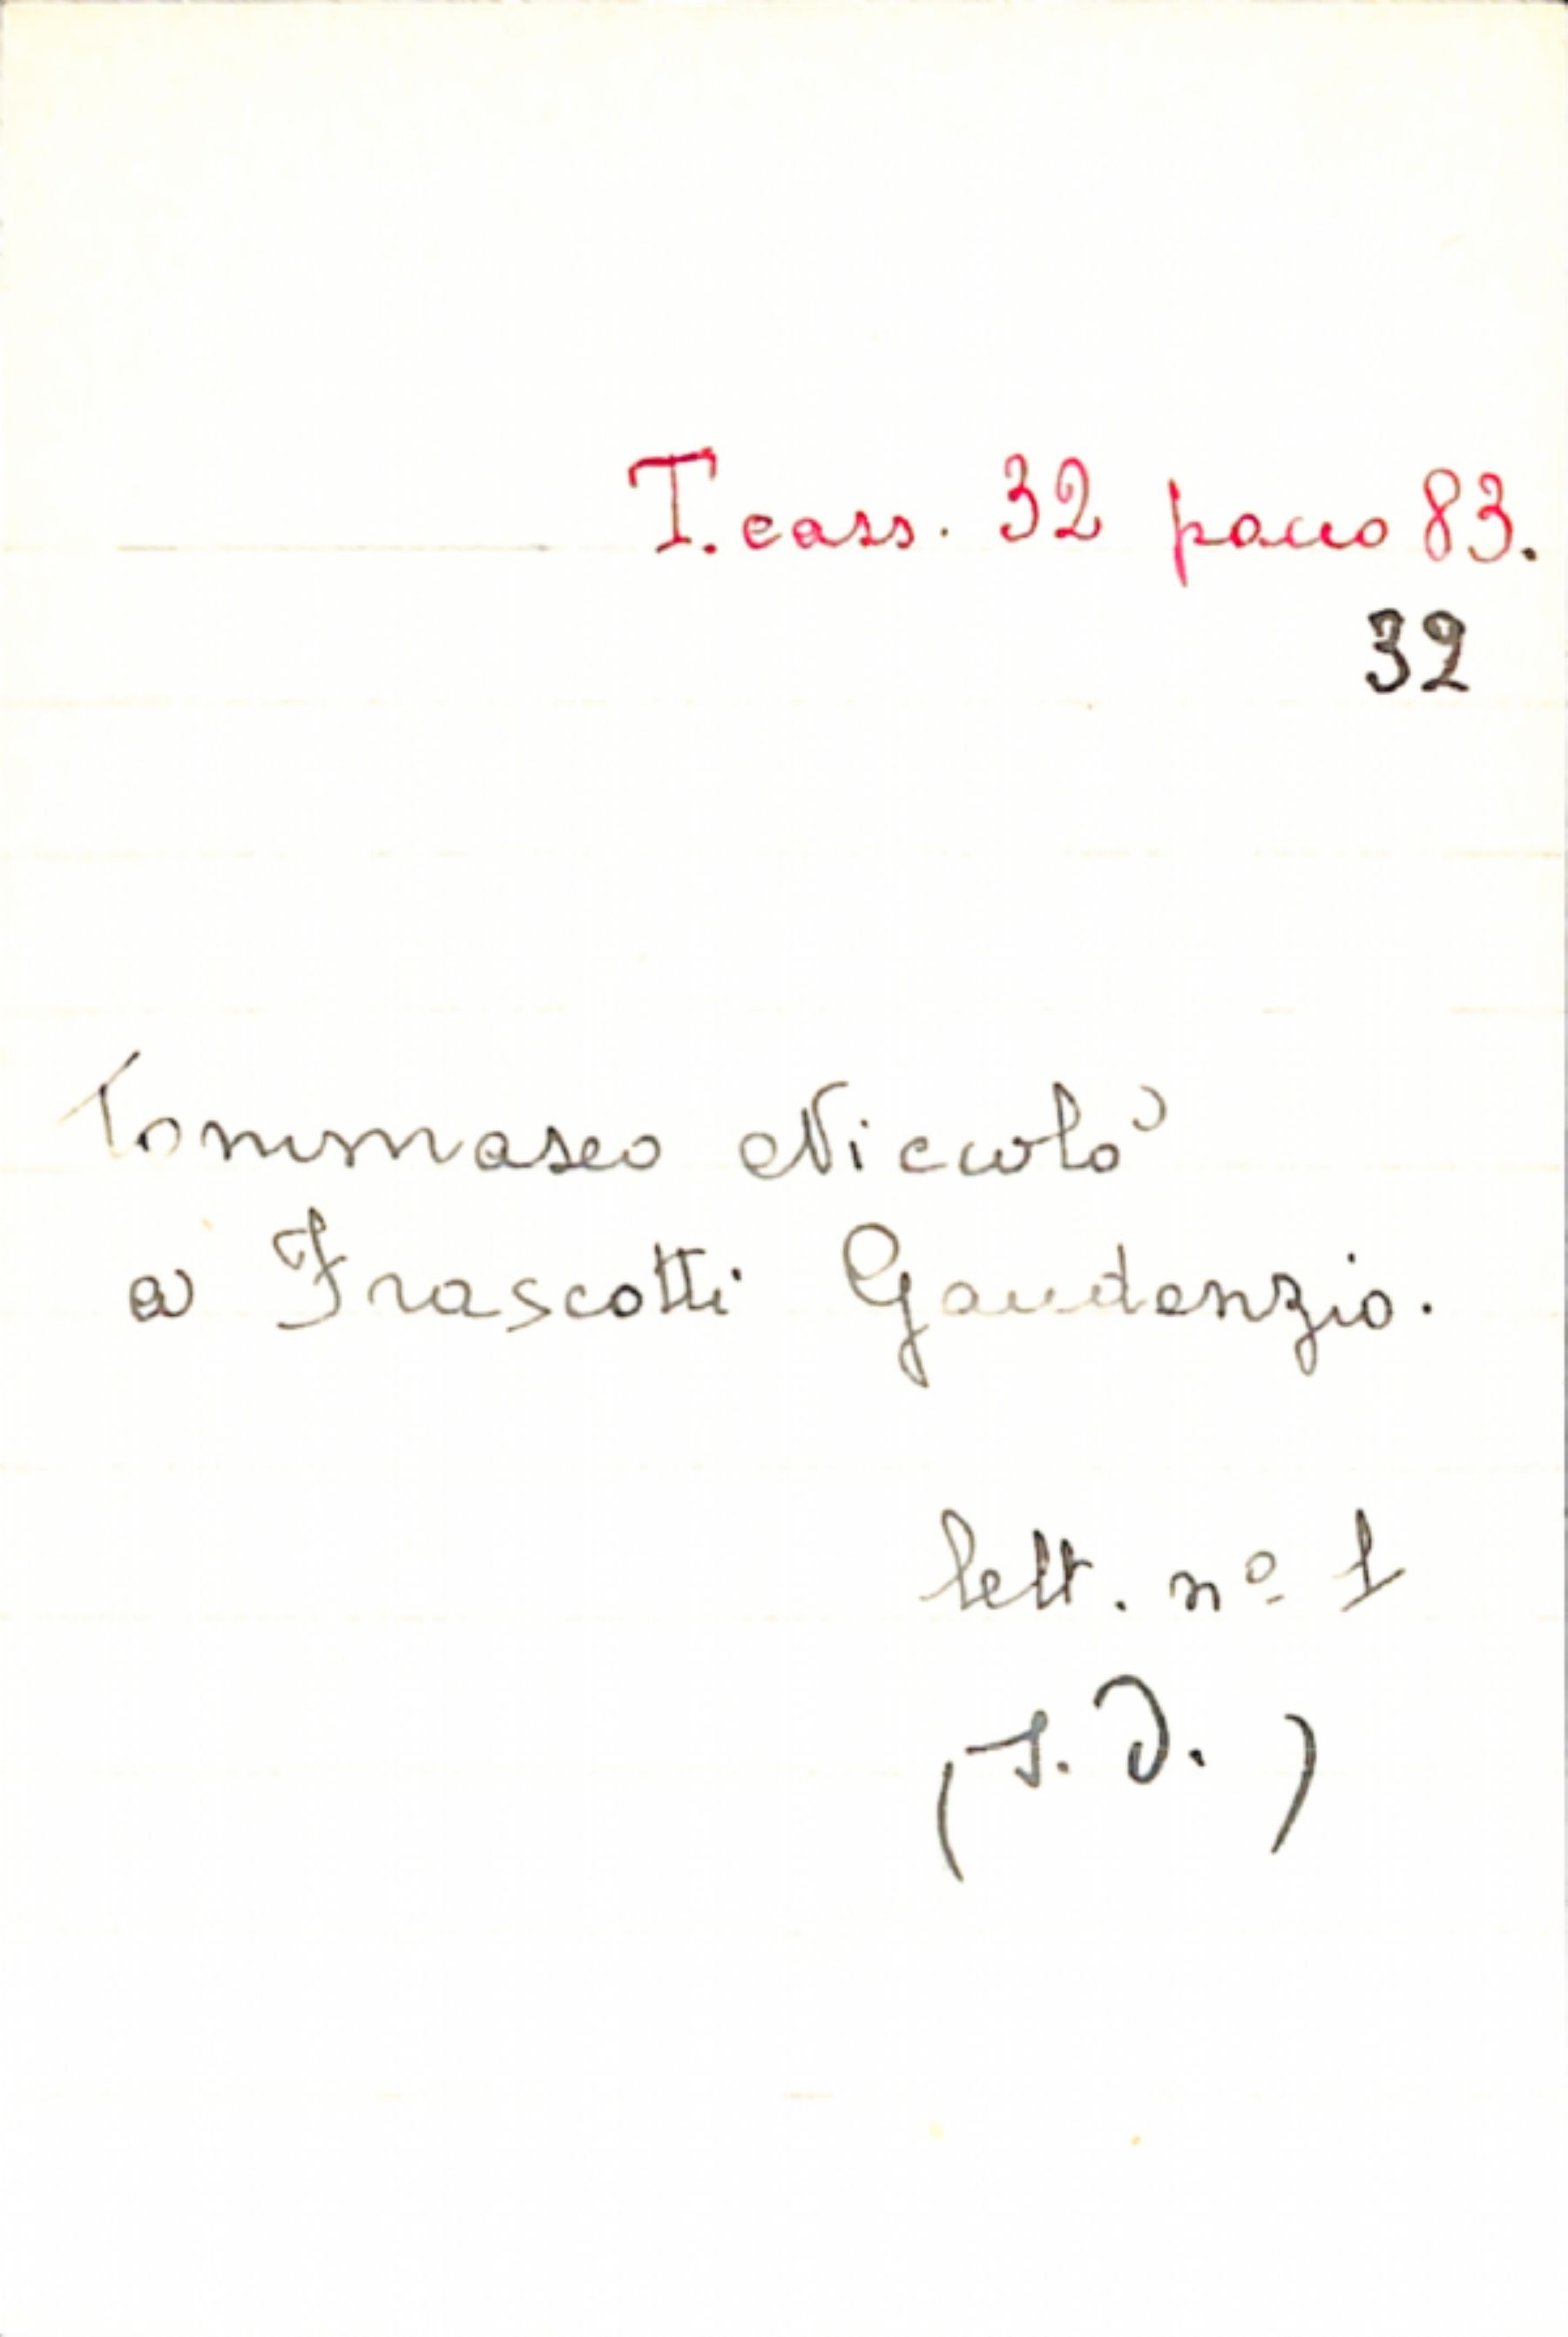 T. cass. 32 pacco 83.
32
Tommaseo Niccolò
a Frascotti Gaudenzio.
lett. nº 1
(s. d.)